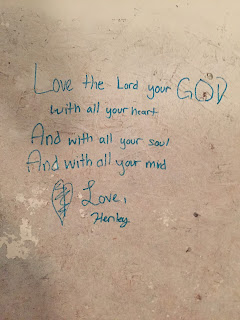 Love the Lord your GOD
with all your heart
And with all your soul
And with all your mind
Love,
Henley